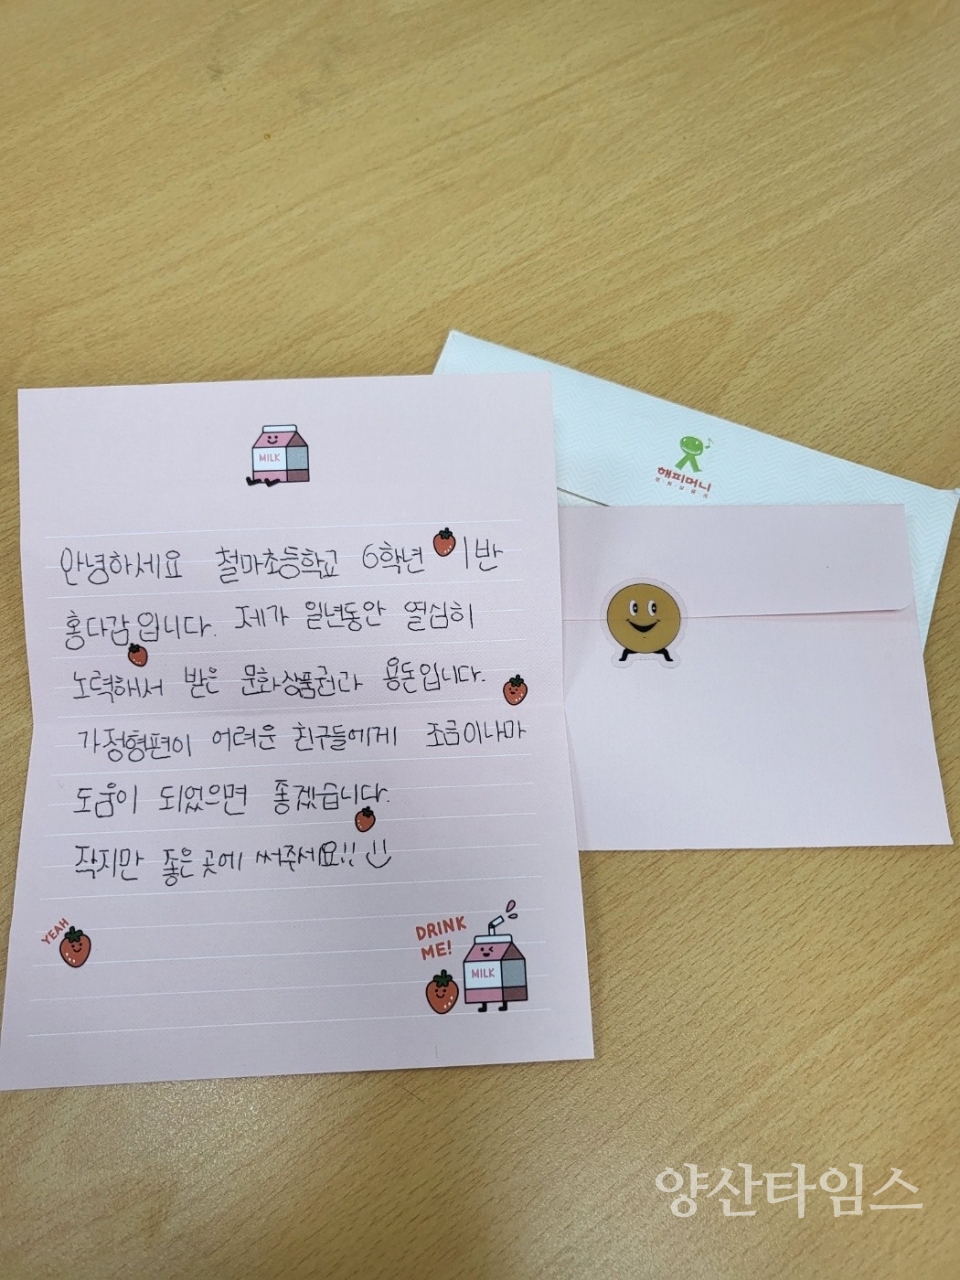 MILK
안녕하세요 철마초등학교 6학년 1반
홍다감입니다. 제가 일년동안 열심히
노력해서 받은 문화상품권과 용돈입니다.
가정형편이 어려운 친구들에게 조금이나마
도움이 되었으면 좋겠습니다.
작지만 좋은 곳에 써주세요!!
YEAH
DRINK
ME!
MILK
해피머니
문화상품권
양산타임스